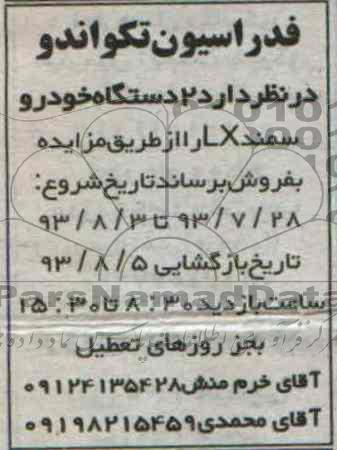 فدراسیون تکواندو
در نظر دارد ۲ دستگاه خودرو
سمند LX را از طریق مزایده
بفروش برساند تاریخ شروع:
۹۳/۷/۲۸ تا ۹۳/۸/۳
تاریخ بازگشایی ۹۳/۸/۵
ساعت بازدید ۸:۳۰ تا ۱۵:۳۰
بجز روزهای تعطیل
آقای خرم منش ۰۹۱۲۴۱۳۵۴۲۸
آقای محمدی ۰۹۱۹۸۲۱۵۴۵۹
ParsNamadData